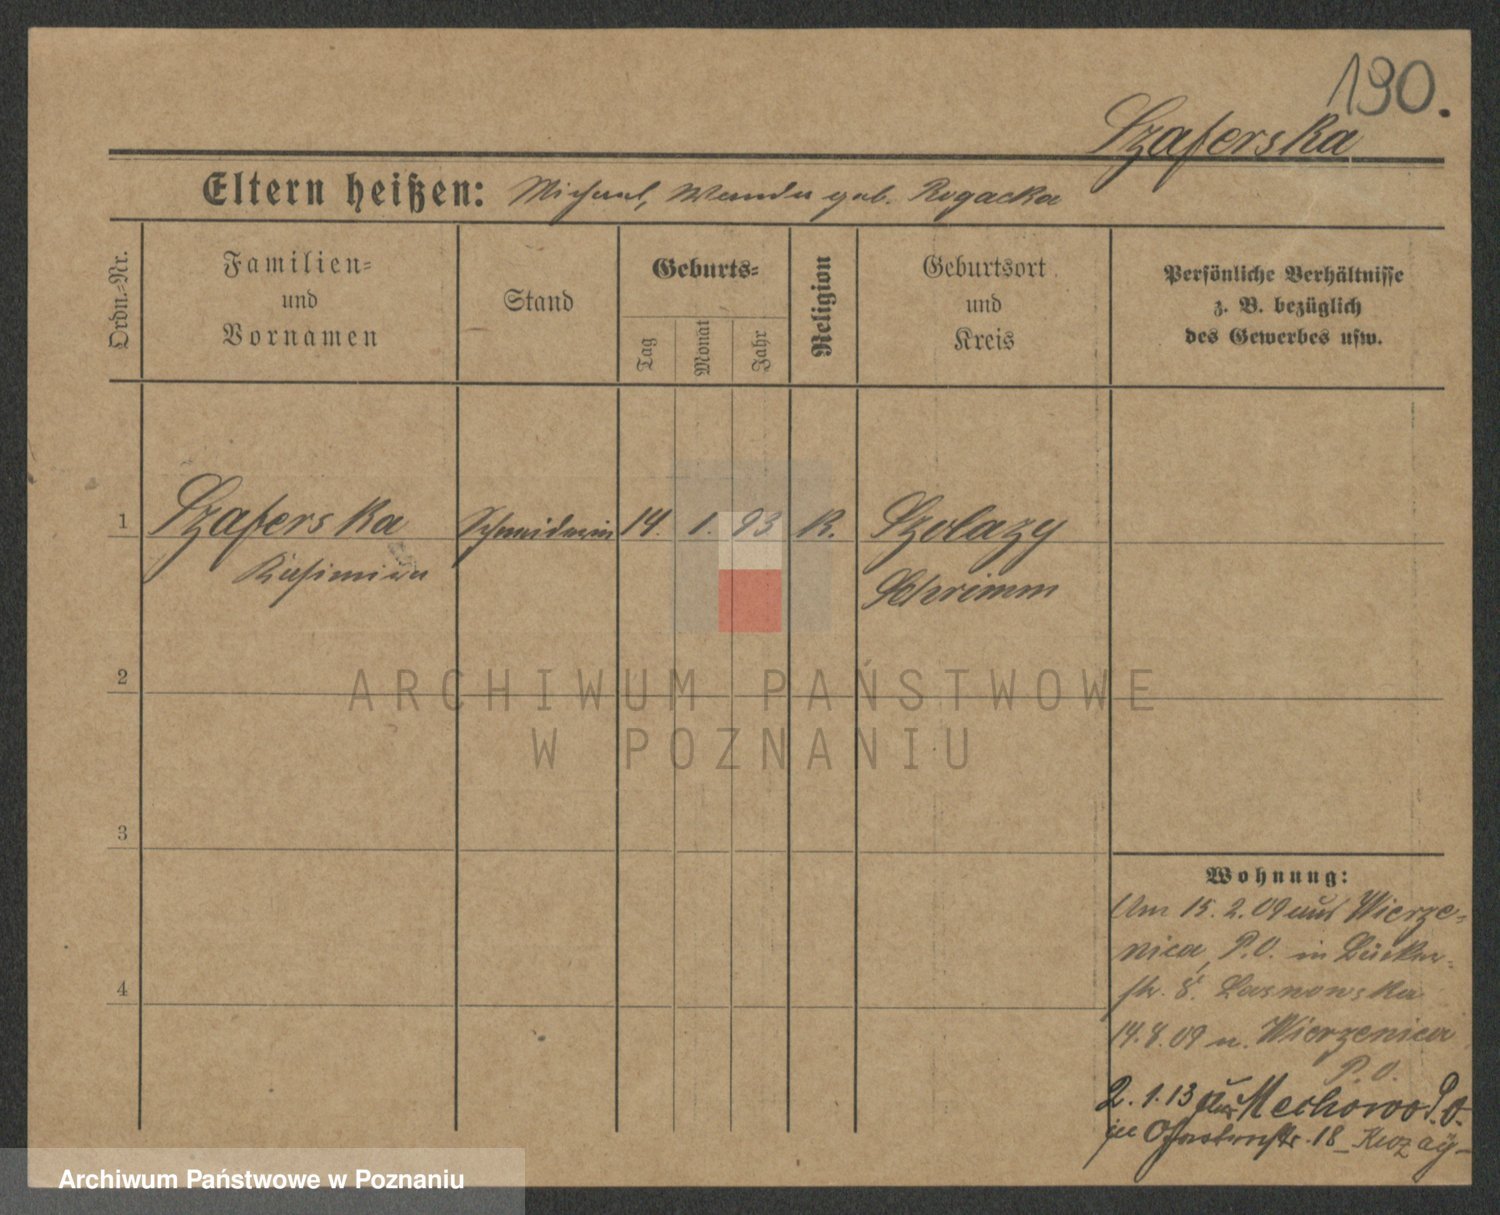 190.
Szaferska
Eltern heißen: Michael, Wanda geb. Rogacka
Ordn.-Nr.
Familien-
und
Vornamen
Stand
Geburts-
Tag
Monat
Jahr
Religion
Geburtsort
und
Kreis
Persönliche Verhältnisse
z. B. bezüglich
des Gewerbes usw.
1 Szaferska Schneiderin 14. 1. 93 K. Szolazy
Kasimira Schrimm
2
ARCHIWUM PAŃSTWOWE
W POZNANIU
3
4
Wohnung:
Am 15. 2. 09 aus Wierze-
nica, P.O. in Bücker-
str. 8. Lasnowska
14.8.09 n. Wierzenica
P.O.
2. 1. 13 aus Mechowo P.O.
in 18
Archiwum Państwowe w Poznaniu